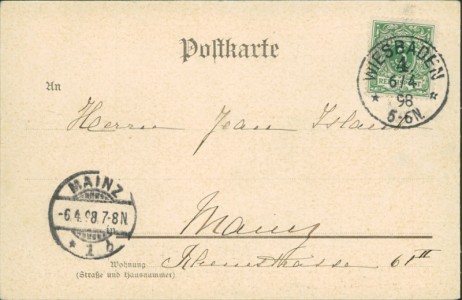 Postkarte
WIESBADEN
1
6/4
98
5-6N.
An
Herrn Jean
MAINZ
-6.4.98.7-8N
* 1 b
Mainz
Wohnung
(Straße und Hausnummer)
Rheinstrasse 61 II